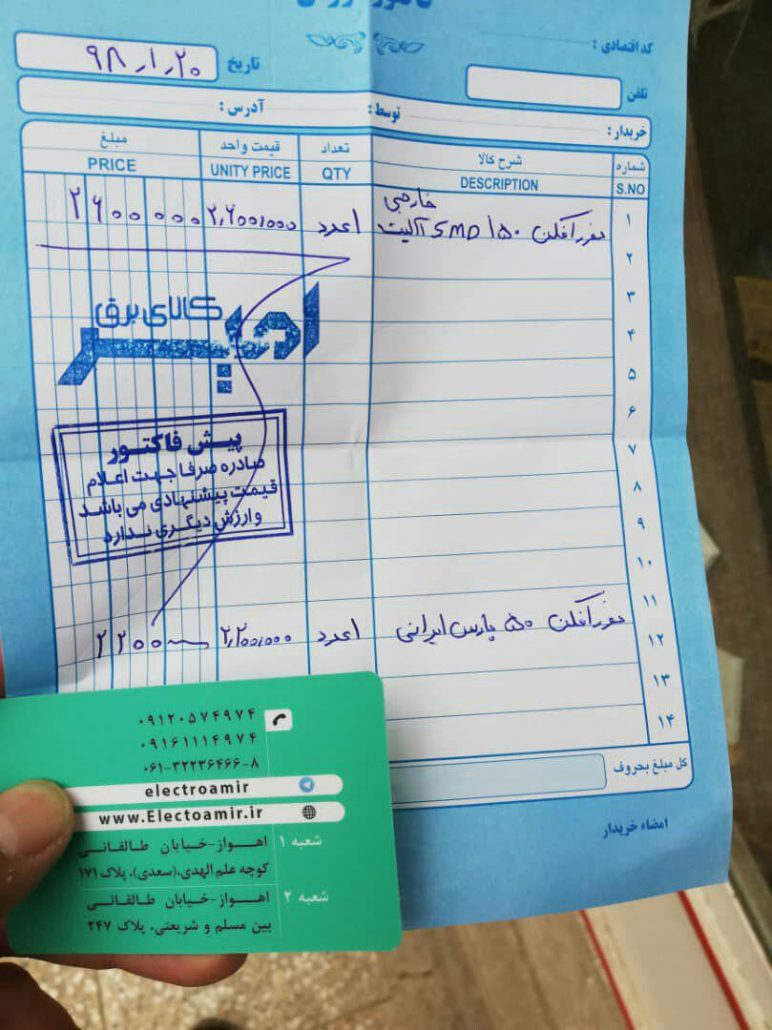 کد اقتصادی :
تاریخ ۹۸٫۱٫۲۰
تلفن
خریدار : توسط : آدرس :
شماره شرح کالا تعداد قیمت واحد مبلغ
S.NO DESCRIPTION QTY UNITY PRICE PRICE
خارجی
۱ ۱۵۰ SMD آلیت ۱عدد ۲,۶۰۰,۰۰۰ ۲۶۰۰۰۰۰
۲
۳
۴
۵
۶
۷
۸
۹
۱۰
۱۱
۱۲ ۵۰ پارس ایرانی ۱عدد ۲,۲۰۰,۰۰۰ ۲۲۰۰
۱۳
۱۴
کالای برق
امیر
پیش فاکتور
صادره صرفا جهت اعلام
قیمت پیشنهادی می باشد
و ارزش دیگری ندارد
کل مبلغ بحروف
امضاء خریدار
۰۹۱۲۰۵۷۴۹۷۴
۰۹۱۶۱۱۱۴۹۷۴
۰۶۱-۳۲۲۳۶۴۶۶-۸
electroamir
www.Electoamir.ir
شعبه ۱ اهواز-خیابان طالقانی
کوچه علم الهدی،(سعدی)، پلاک ۱۷۱
شعبه ۲ اهواز-خیابان طالقانی
بین مسلم و شریعتی، پلاک ۲۴۷